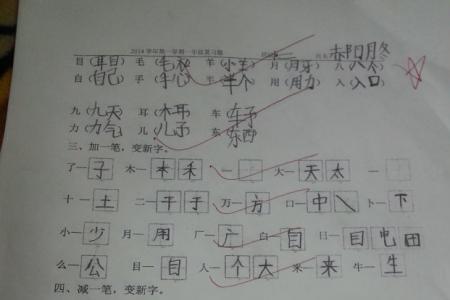 2014 学年第一学期一年级复习题
目（耳目） 毛（毛心） 羊（小羊） 月（月牙） 八（八个）
自（自己） 手（手心） 半（半个） 用（用力） 入（入口）
九（九天） 耳（木耳） 车（车子）
力（力气） 儿（儿子） 东（东西）
三、加一笔，变新字。
了—子 木—本禾 大—天太
十—土 二—干于 万—方 口—中 卜—下
小—少 月—用 厂—广 白—自 日—目电田
么—公 目—自 人—个大 米—来 牛—生
四、减一笔，变新字。